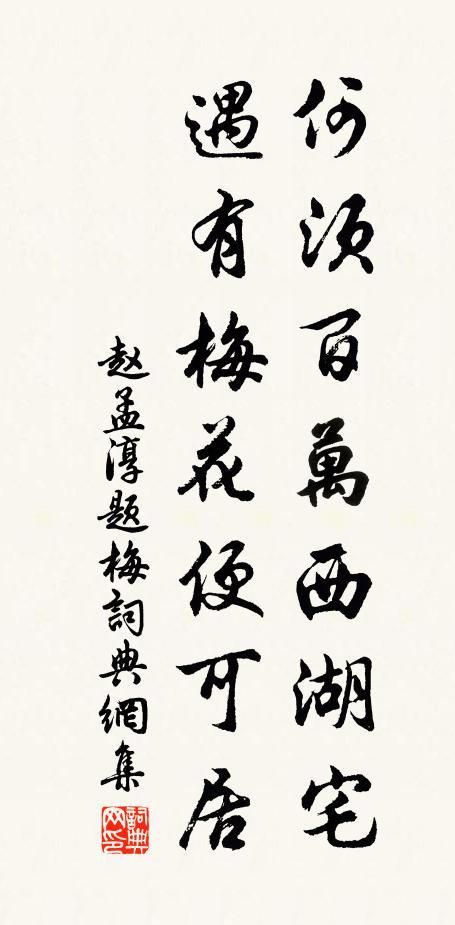 何須百萬西湖宅
遇有梅花便可居
赵孟淳题梅詞典網集
詞典网印